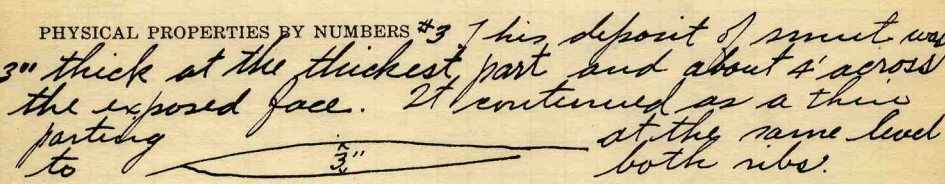 PHYSICAL PROPERTIES BY NUMBERS #3 This deposit of smut was
3" thick at the thickest part and about 4' across
the exposed face. It continued as a thin
parting at the same level
to 3" both ribs.